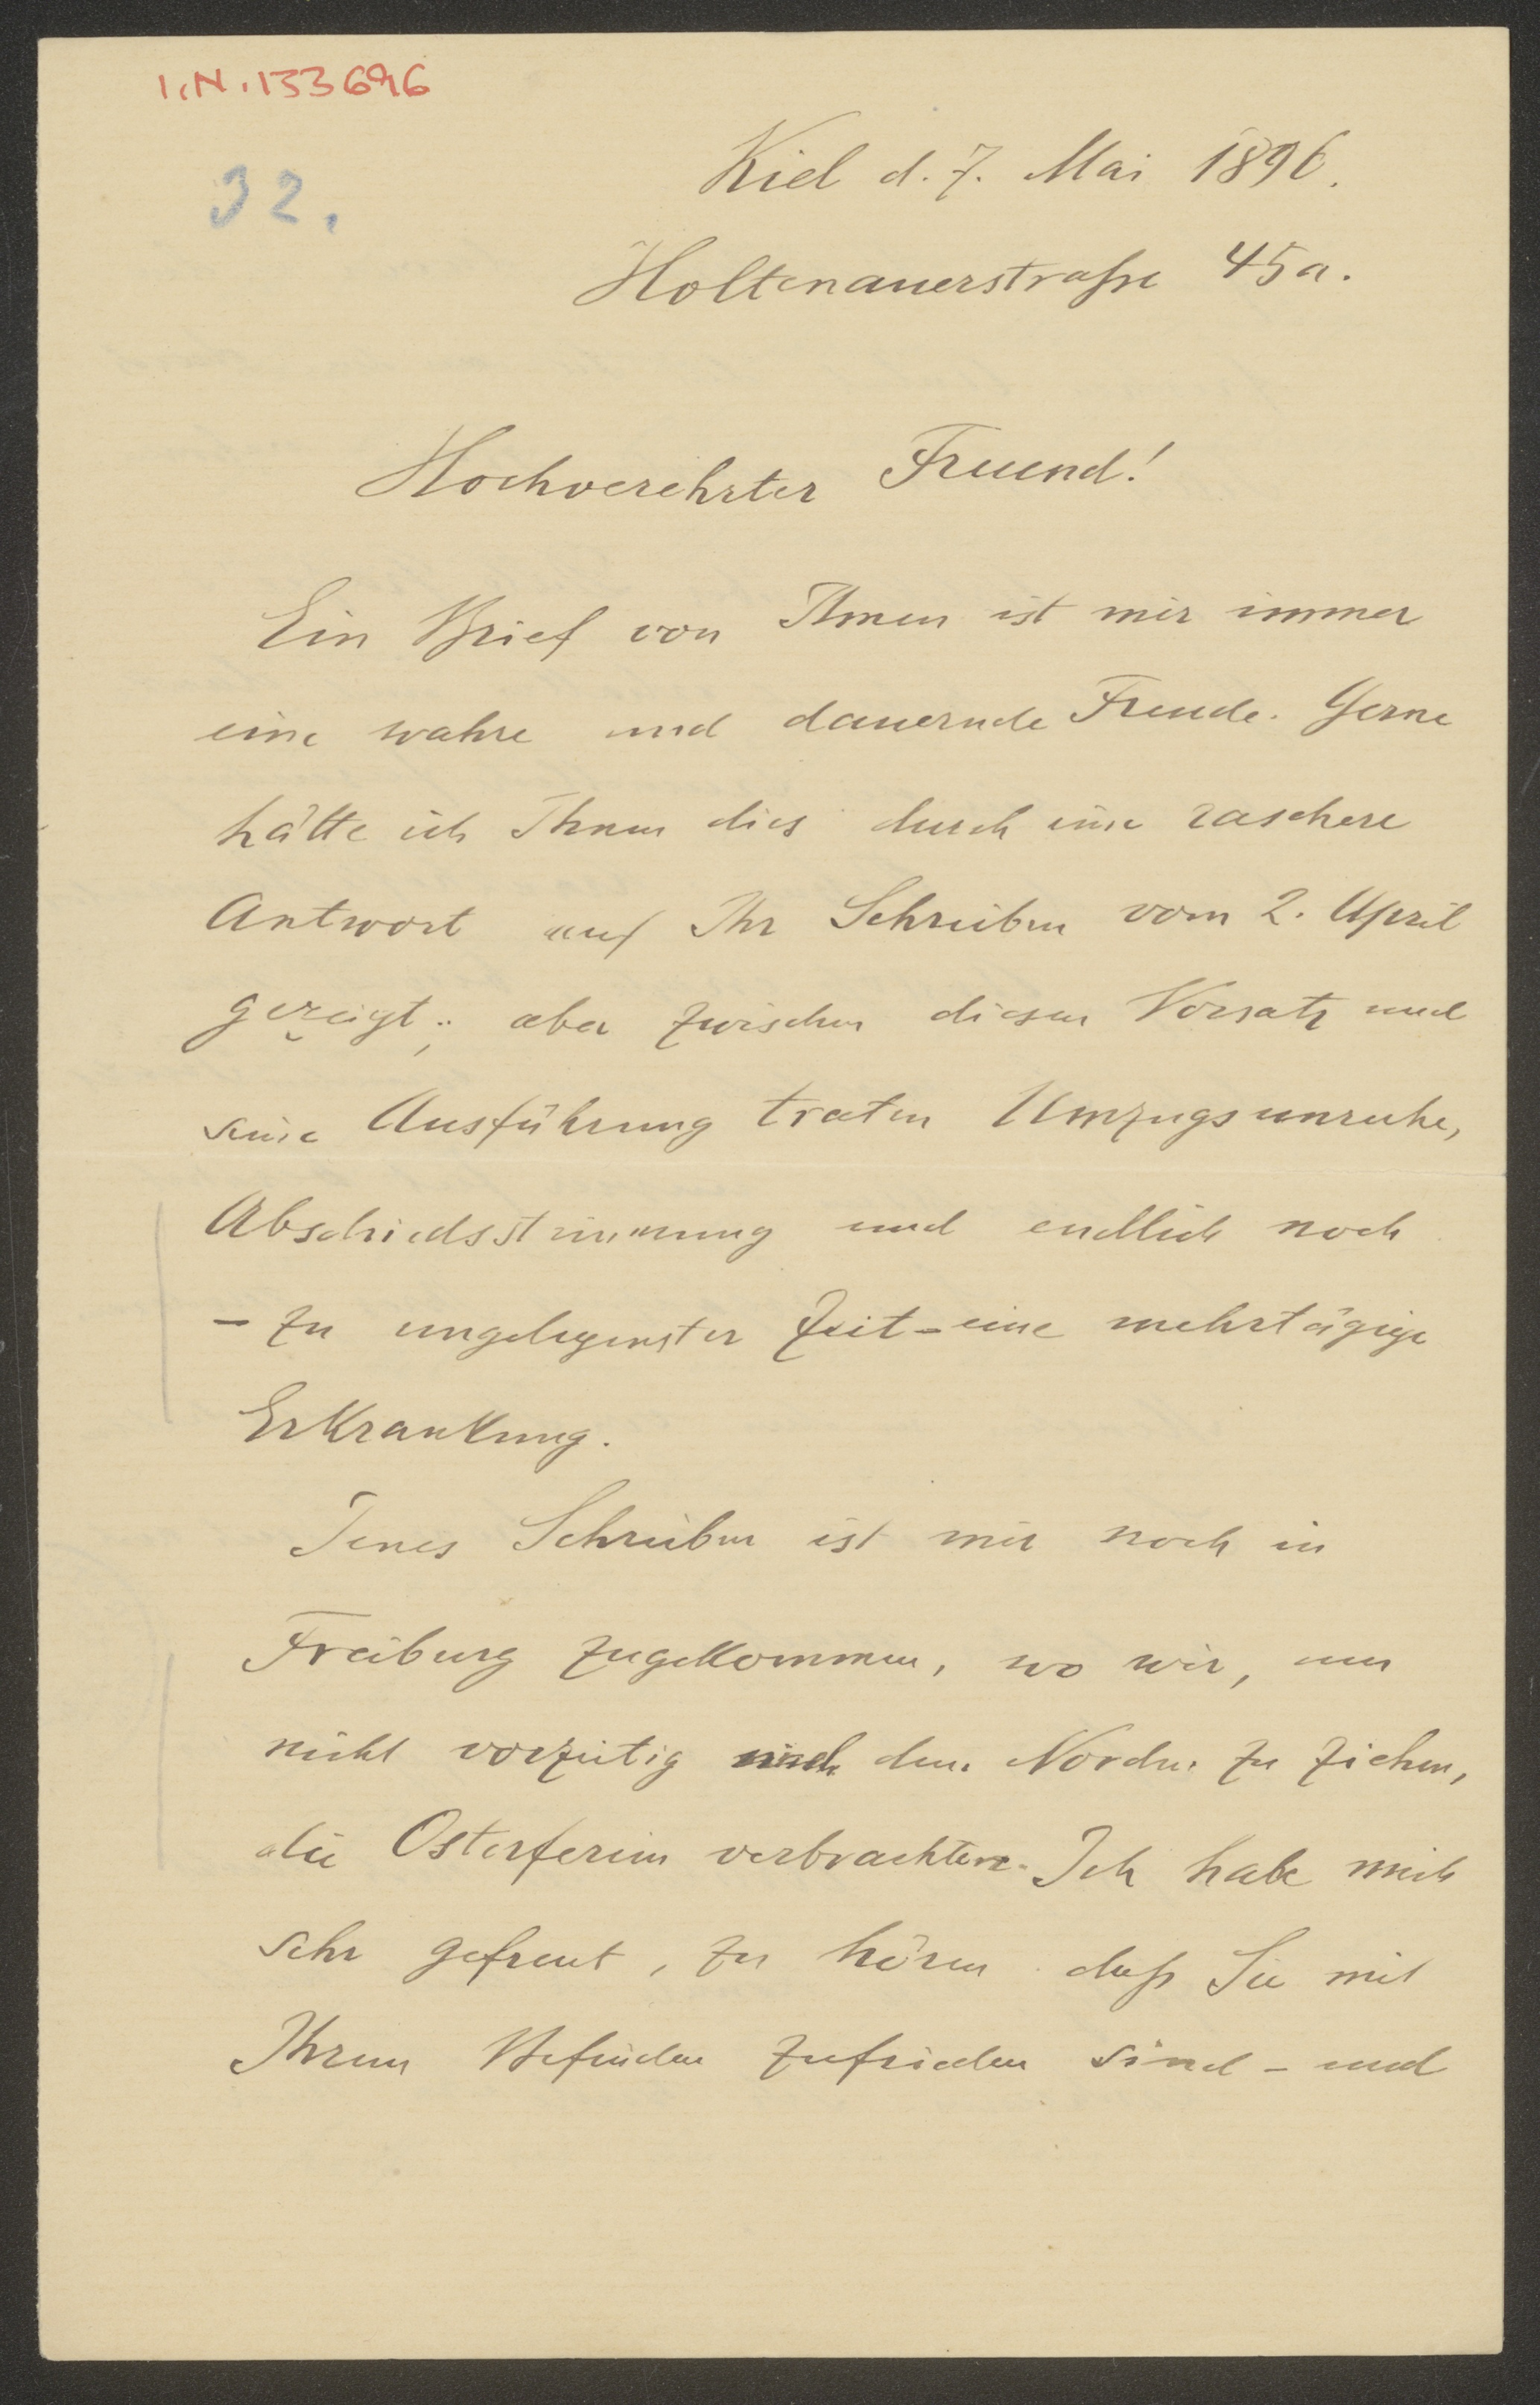 I.N.133696
32.
Kiel d. 7. Mai 1896.
Holtenauerstraße 45a.
Hochverehrter Freund!
Ein Brief von Ihnen ist mir immer
eine wahre und dauernde Freude. Gerne
hätte ich Ihnen dies durch eine raschere
Antwort auf Ihr Schreiben vom 2. April
gezeigt; aber zwischen diesen Vorsatz und
seine Ausführung traten Umzugsunruhe,
Abschiedsstimmung und endlich noch
– zu ungelegenster Zeit – eine mehrtägige
Erkrankung.
Jenes Schreiben ist mir noch in
Freiburg zugekommen, wo wir, um
nicht vorzeitig nach dem Norden zu ziehen,
die Osterferien verbrachten. Ich habe mich
sehr gefreut, zu hören daß Sie mit
Ihrem Befinden zufrieden sind – und